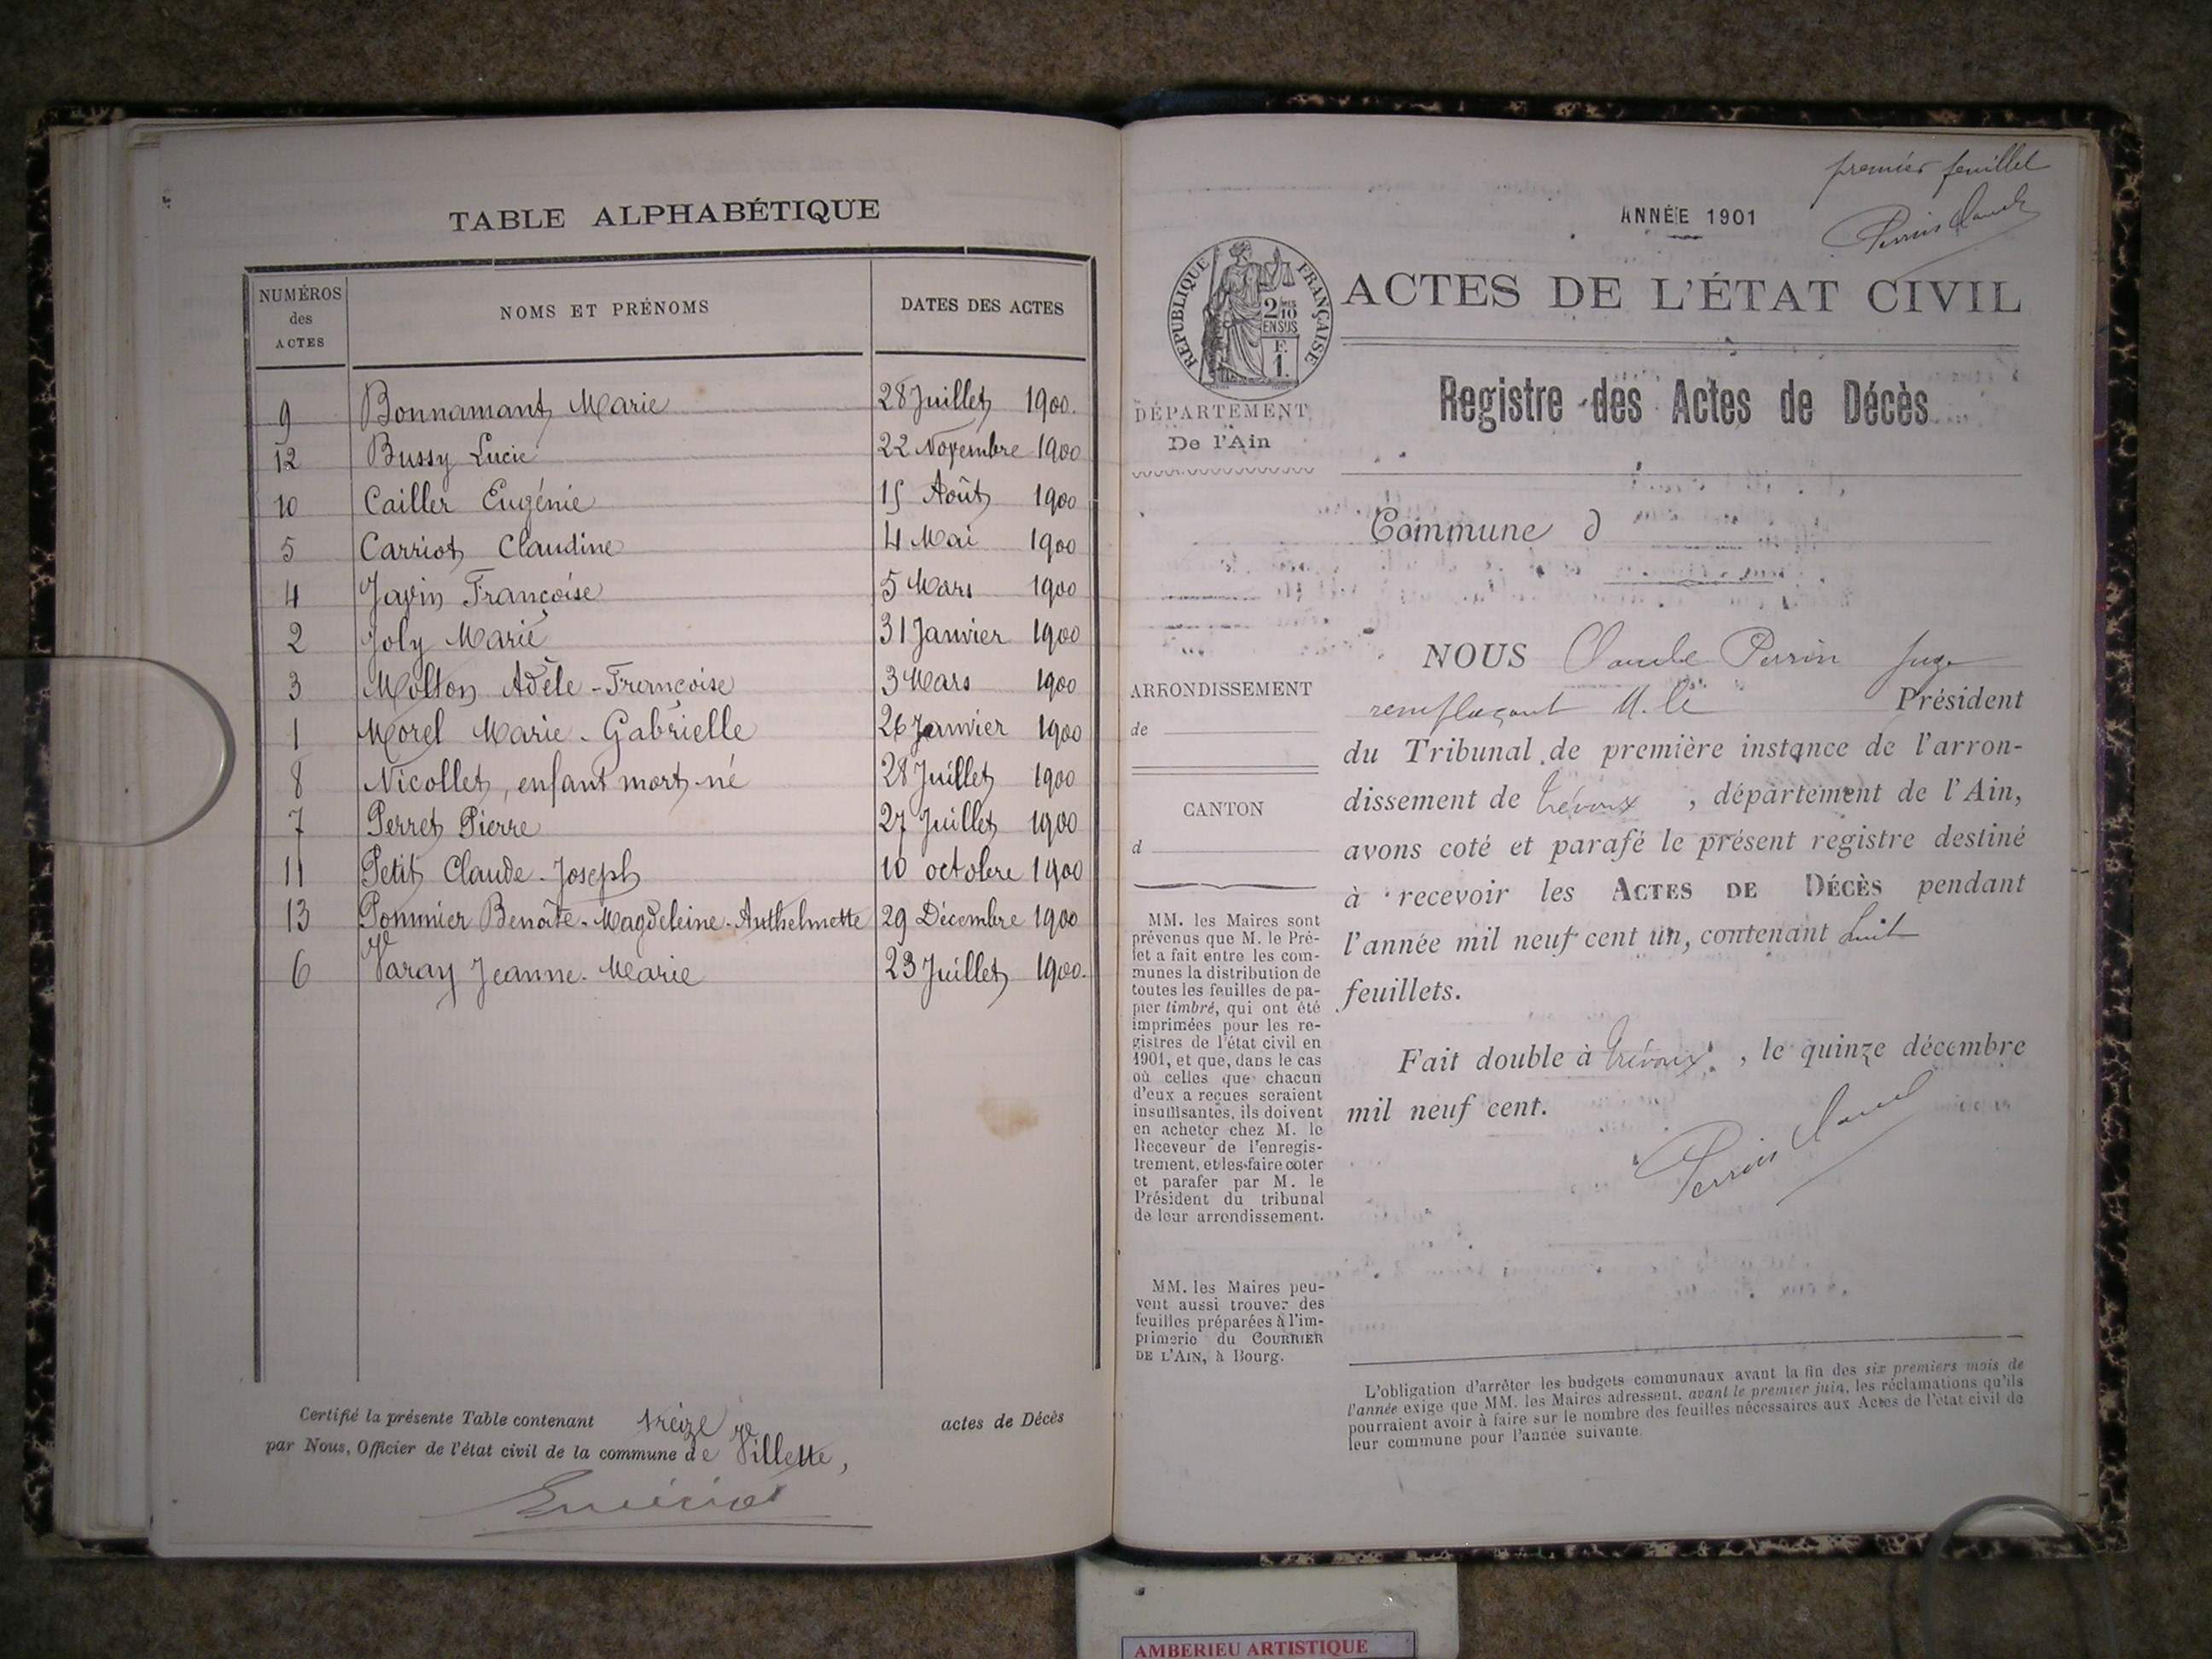 TABLE ALPHABÉTIQUE
NUMÉROS des ACTES NOMS ET PRÉNOMS DATES DES ACTES
9 Bonnamant Marie 28 Juillet 1900.
12 Bussy Lucie 22 Novembre 1900
10 Cailler Eugénie 15 Août 1900
5 Carriot Claudine 4 Mai 1900
4 Javin Françoise 5 Mars 1900
2 Joly Marie 31 Janvier 1900
3 Molton Adèle-Françoise 3 Mars 1900
1 Morel Marie-Gabrielle 26 Janvier 1900
8 Nicollet, enfant mort-né 28 Juillet 1900
7 Perret Pierre 27 Juillet 1900
11 Petit Claude-Joseph 10 octobre 1900
13 Pommier Benoîte-Magdeleine-Anthelmette 29 Décembre 1900
6 Varay Jeanne-Marie 23 Juillet 1900.
Certifié la présente Table contenant treize actes de Décès
par Nous, Officier de l'état civil de la commune de Villette,
premier feuillet
Perrin Claude
ANNÉE 1901
RÉPUBLIQUE FRANÇAISE
2/10
EN SUS
F.
1.
ACTES DE L'ÉTAT CIVIL
Registre des Actes de Décès
DÉPARTEMENT
De l'Ain
Commune d
ARRONDISSEMENT
de
CANTON
d
MM. les Maires sont
prévenus que M. le Pré-
fet a fait entre les com-
munes la distribution de
toutes les feuilles de pa-
pier timbré, qui ont été
imprimées pour les re-
gistres de l'état civil en
1901, et que, dans le cas
où celles que chacun
d'eux a reçues seraient
insuffisantes, ils doivent
en acheter chez M. le
Receveur de l'enregis-
trement, et les faire coter
et parafer par M. le
Président du tribunal
de leur arrondissement.
MM. les Maires peu-
vent aussi trouver des
feuilles préparées à l'im-
primerie du COURRIER
DE L'AIN, à Bourg.
NOUS Claude Perrin Juge
remplaçant M. le Président
du Tribunal de première instance de l'arron-
dissement de Trévoux, département de l'Ain,
avons coté et parafé le présent registre destiné
à recevoir les ACTES DE DÉCÈS pendant
l'année mil neuf cent un, contenant huit
feuillets.
Fait double à Trévoux, le quinze décembre
mil neuf cent.
Perrin Claude
L'obligation d'arrêter les budgets communaux avant la fin des six premiers mois de
l'année exige que MM. les Maires adressent, avant le premier juin, les réclamations qu'ils
pourraient avoir à faire sur le nombre des feuilles nécessaires aux Actes de l'état civil de
leur commune pour l'année suivante.
AMBERIEU ARTISTIQUE